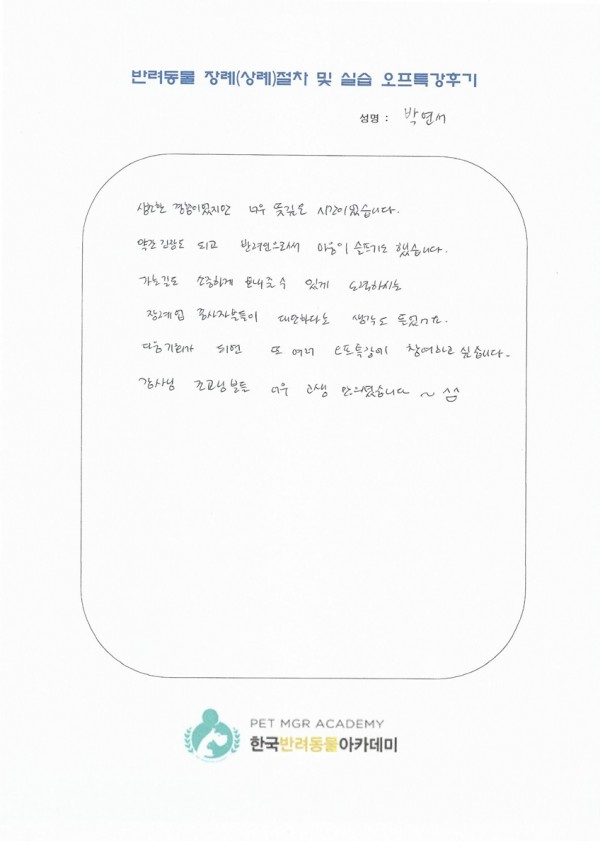 반려동물 장례(상례)절차 및 실습 오프특강후기
성명 : 박연서
생소한 경험이었지만 너무 뜻깊은 시간이었습니다.
약간 긴장도 되고 반려인으로써 마음이 슬프기도 했습니다.
가는길도 소중하게 보내줄수 있게 노력하시는
장례업 종사자분들이 대단하다는 생각도 들었구요.
다음기회가 되면 또 여러 오프특강에 참여하고 싶습니다.
강사님 조교님분들 너무 고생 많으셨습니다 ~ ^^
PET MGR ACADEMY
한국반려동물아카데미